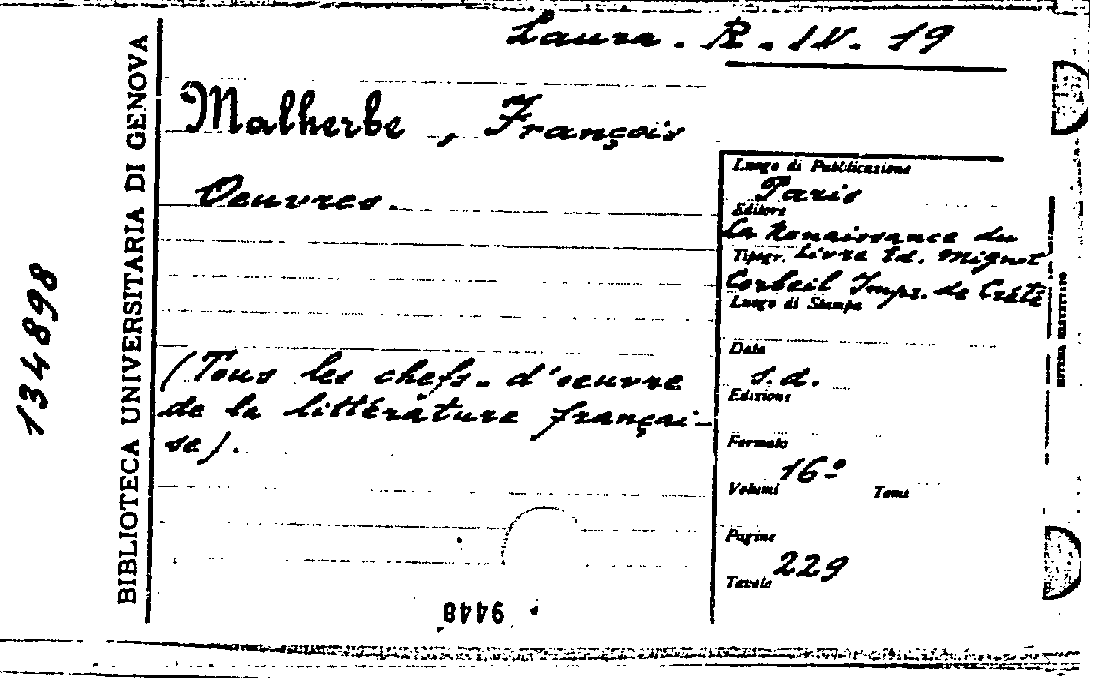 Laura. R. IV. 19
Malherbe, François
Oeuvres.
(Tous les chefs-d'oeuvre
de la littérature françai-
se).
Luogo di Pubblicazione
Paris
Editore
La Renaissance du
Tipogr. Livre Ed. Mignot
Corbeil Impr. de Crété
Luogo di Stampa
Data
s.d.
Edizione
Formato
16º
Volumi Tomi
Pagine
229
Tavole
BIBLIOTECA UNIVERSITARIA DI GENOVA
134898
9448